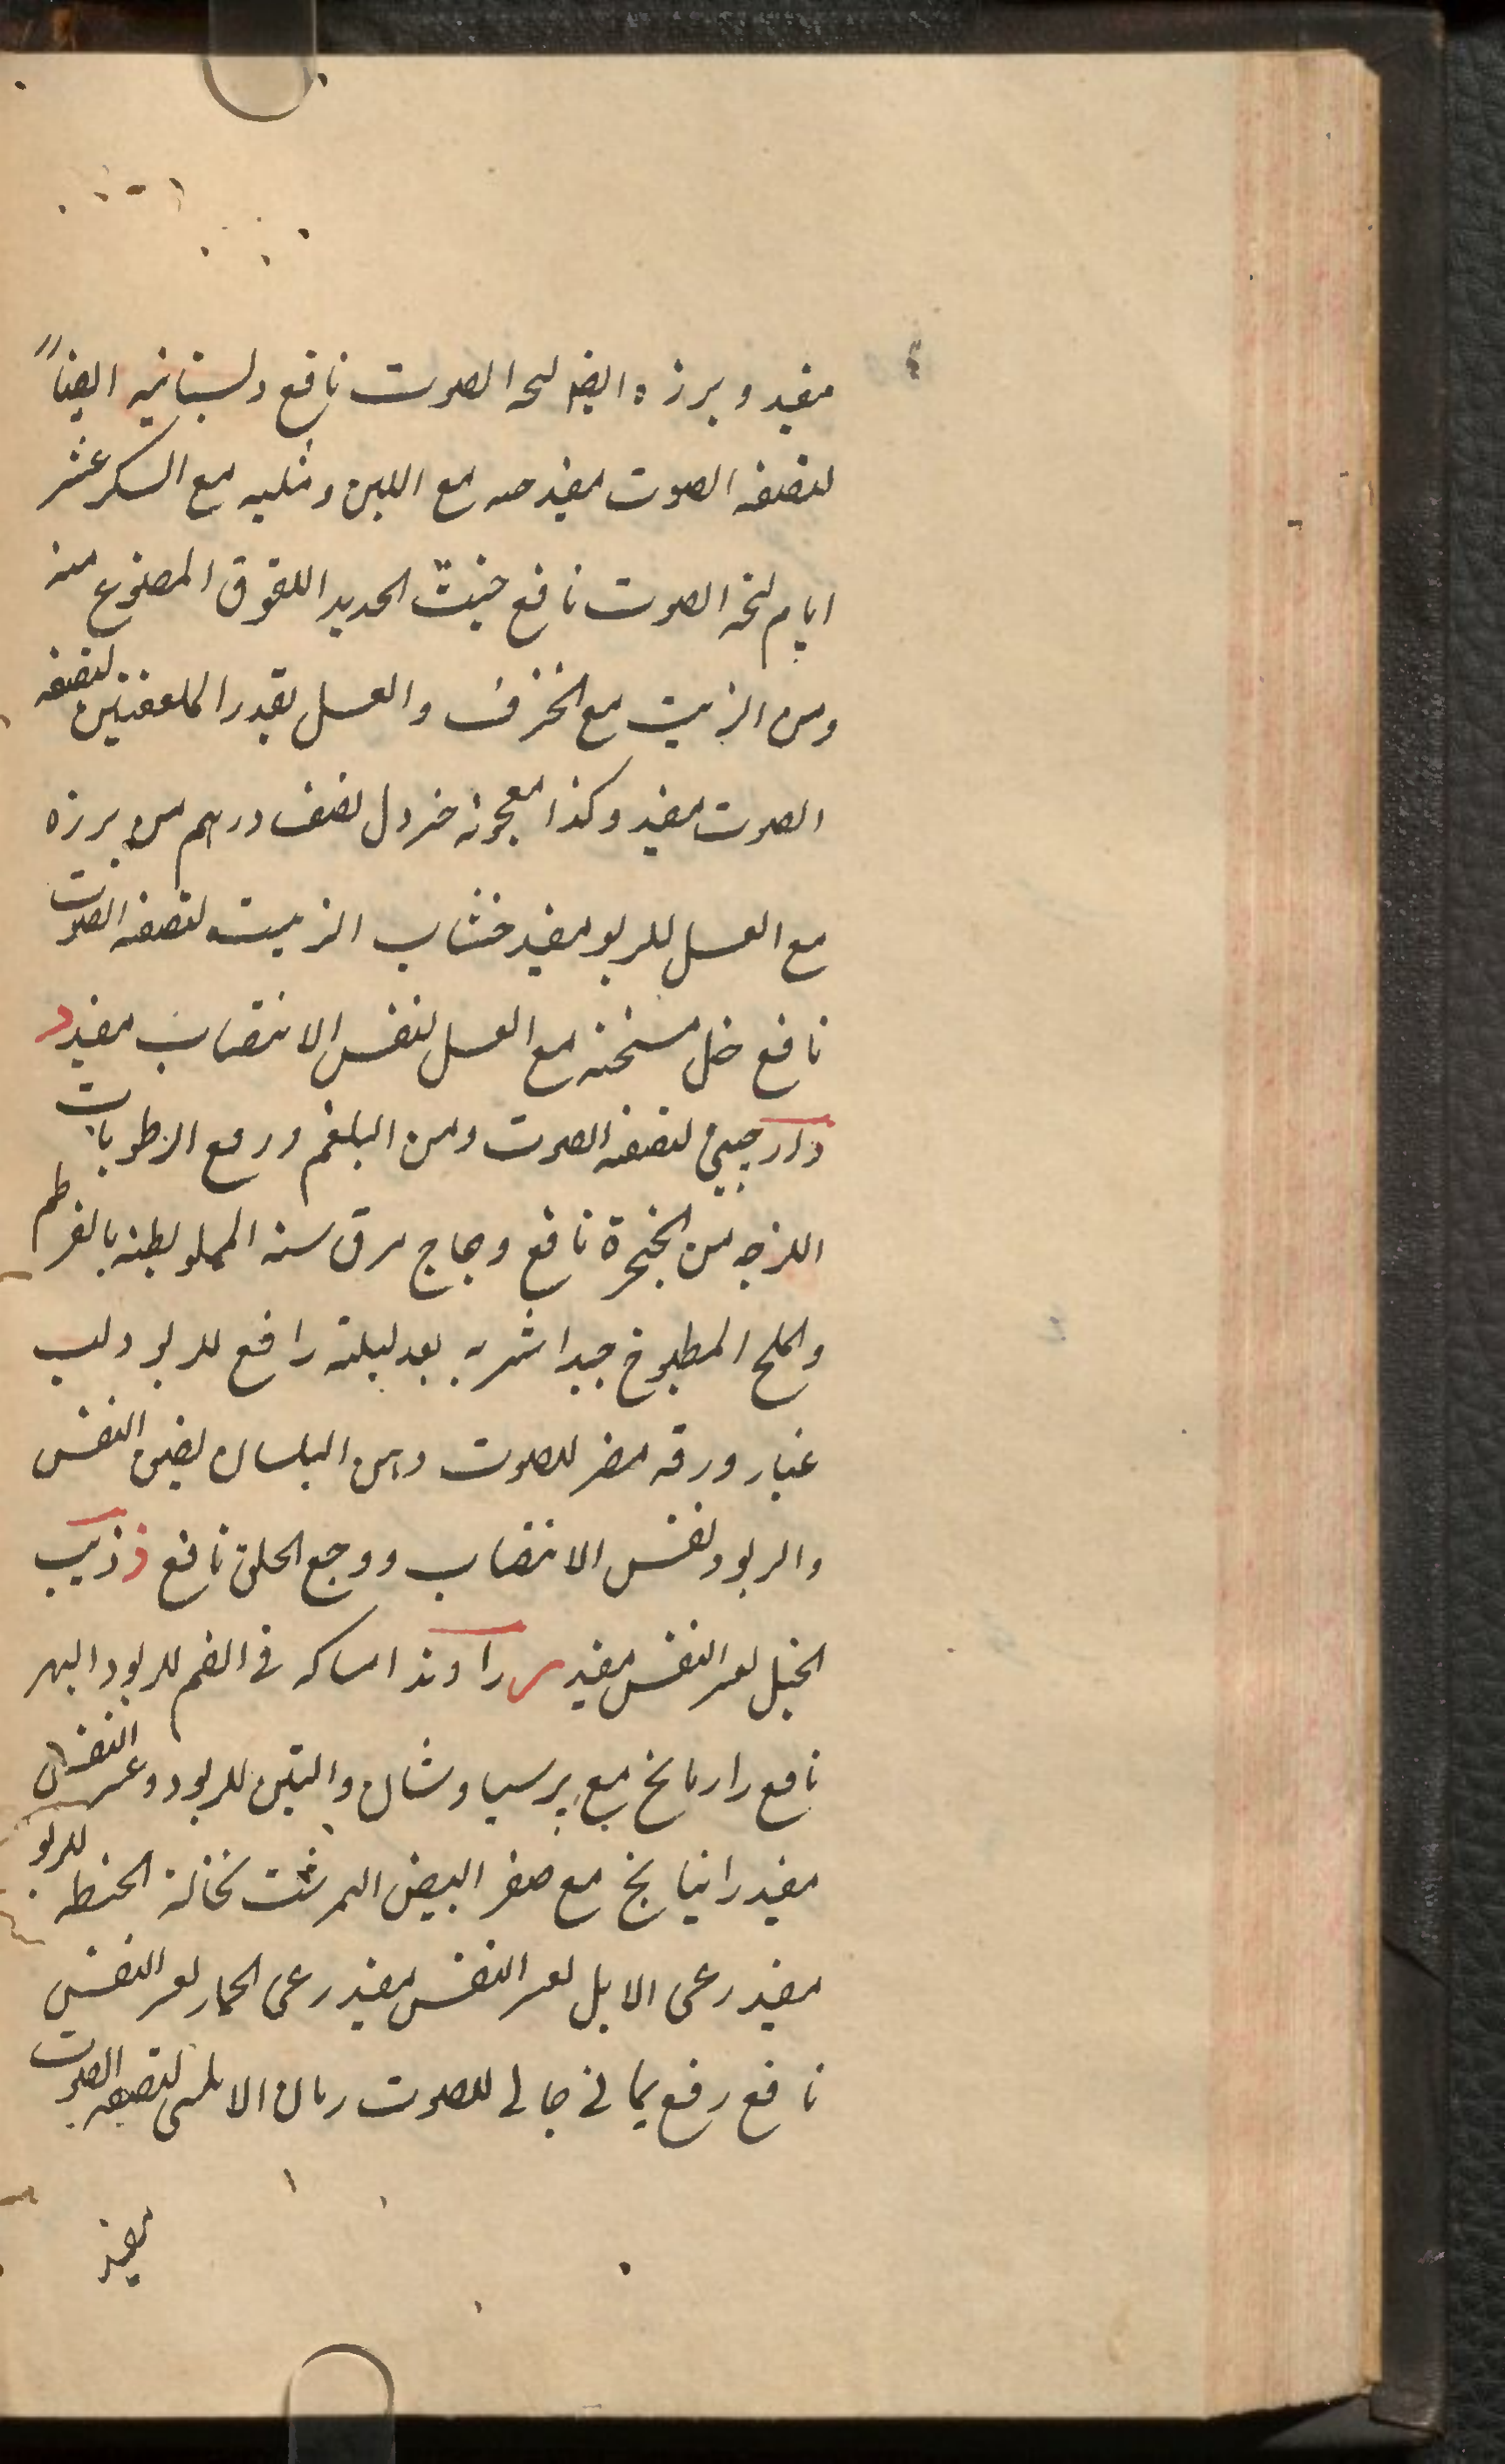 مفید و برزه ایضا لبحه الصوت نافع و لسبتانیه ایضاً
لتصفه الصوت مفید مع اللبن و مثلیه مع السکر عشر
ایام لبحه الصوت نافع خبث الحدید اللعوق المصنوع منه
ومن الزیت مع الخزف والعسل بقدر الملعقتین لتصفه
الصوت مفید و کذا معجونه خردل نصف درهم من برزه
مع العسل للربو مفید خشاب الزیت لتصفه الصوت
نافع خل مسخنه مع العسل لنفس الانتصاب مفید د
دارجینی لتصفه الصوت ومن البلغم ورفع الرطوبات
اللزجه من الحنجرة نافع دجاج مرق سنه المملو بطنه بالقرطم
والملح المطبوخ جیدا شربه بعد لیلته رافع للربو دلب
غبار ورقه مضر للصوت دهن البلسان لضیق النفس
والربو ونفس الانتصاب ووجع الحلق نافع ذ ذیب
الخیل لعسر النفس مفید ر راوند امساکه فی الفم للربو والبهر
نافع رازیانج مع برسیاوشان والتین للربو و عسر النفس
مفید راتیانج مع صفر البیض النمرشت نخالة الحنطه للربو
مفید رعی الابل لعسر النفس مفید رعی الحمار لعسر النفس
نافع رفع یمانی جالی للصوت رمان الاملس لتصفیه الصوت
مفید